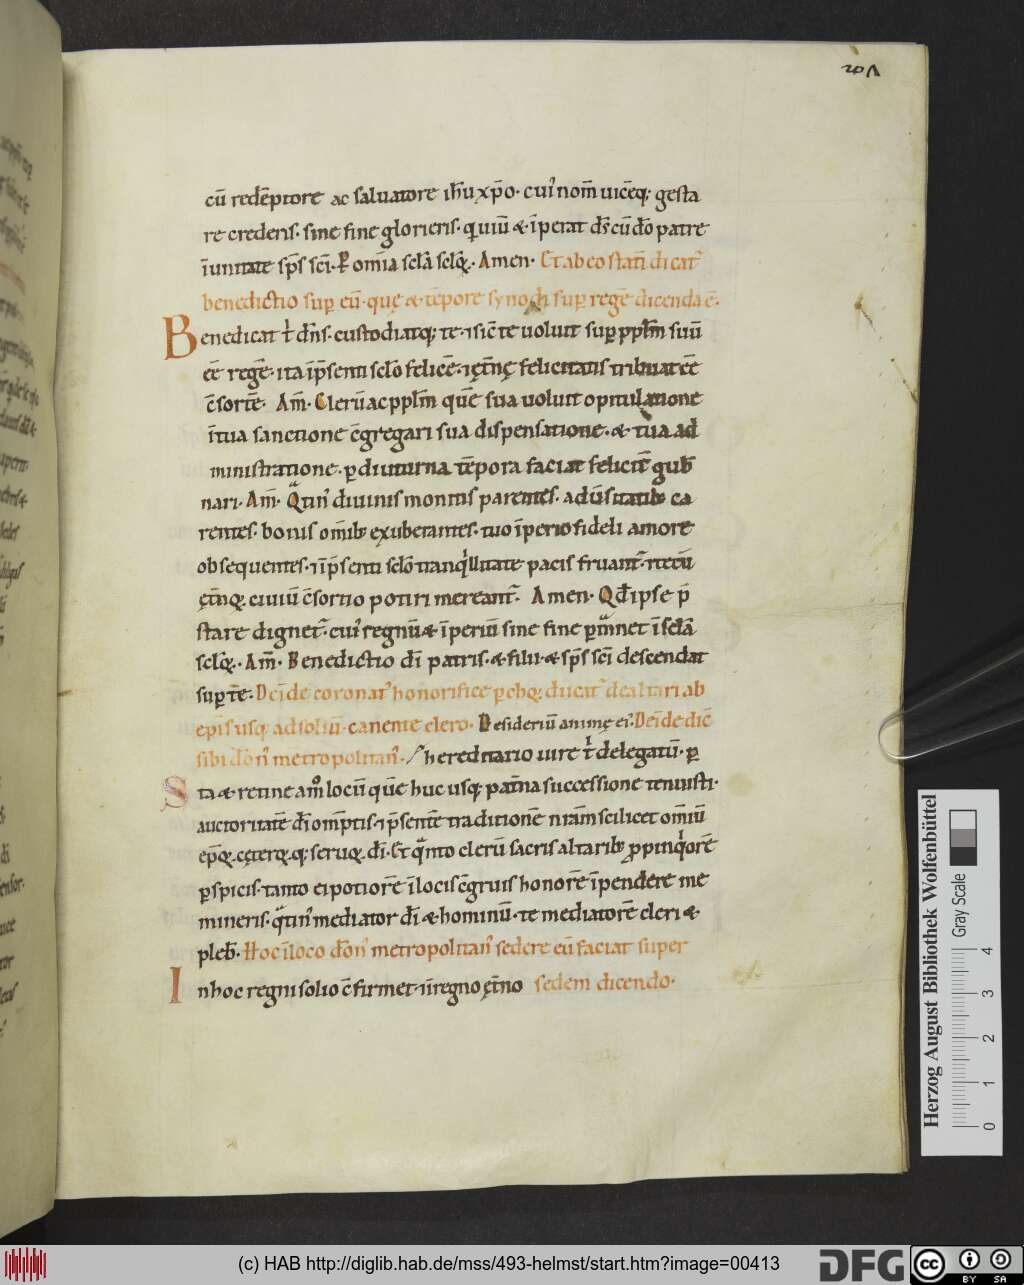 207
cū redēptore ac saluatore ih̄u xp̄o· cui᾽ nom̄ uicēq; gesta
re crederis· sine fine glorieris· q̇ uiuit & īperat ds̄ cū dō patre
ī unitate sp̄s sc̄i· P̱ om̄ia sc̄la sc̄lo̧ꝝ· Amen· Et ab eo statī dicat᷑
benedictio sup̱ eū· quę & tēpore synodi sup̱ regē dicenda ē·
Benedicat t̍ dn̄s· custodiatq; te· ⁊ sic̄ te uoluit sup̱ pp̄lm suū
eē regē· ita īp̄senti sc̄lo felicē· ⁊ ęt̄nę felicitatis tribuat eē
c̄sortē· Am̄· Clerū ac pp̄lm quē sua uoluit opitulatione
ī tua sanctione c̄gregari sua dispensatione· & tua ad
ministratione· ꝑ diuturna tēpora faciat felicit̄ gub̄
nari· Am̄· Qͣtin᾽ diuinis monitis parentes· aduʼsitatib; ca
rentes· bonis om̄ib; exuberantes· tuo īperio fideli amore
obsequentes· ⁊ īp̄senti sc̄lo tranq̍llitate pacis fruant᷑· ⁊ tecū
ęt̄noꝝ ciuiū c̄sortio potiri mereant᷑· Amen· Qd̄ ipse p̄
stare dignet᷑· cui᾽ regnū & īperiū sine fine ꝑmͣnet ī sc̄la
sc̄loꝝ· Am̄· Benedictio dī patris· & filii· & sp̄s sc̄i descendat
sup̱ te· Deīde coronat᾽ honorifice ꝑ choꝝ ducat᷑ de altari ab
epīs usq; ad soliū· canente clero· Desideriū animę ei᾽· Deīde dic̄
sibi dōn᾽ metropolitan᾽· / hereditario iure t̍ delegatū· ꝑ
Sta & retine am̊ locū quē huc usq; pat̄na successione tenuisti·
auctoritatē dī om̄ptis· ⁊ p̄sentē traditionē nrām scilicet omiū
ep̄oꝝ· cęteroꝝq; seruoꝝ dī· Et qͣnto clerū sacris altarib; ꝓpinq̍orē
ꝑspicis· tanto ei potiorē ī locis c̄gruis honorē īpendere me
mineris· qͣtin᾽ mediator dī & hominū· te mediatorē cleri &
pleb̄· Hoc ī loco dōn᾽ metropolitan᾽ sedere eū faciat super
In hoc regni solio c̄firmet· ⁊ ī regno ęt̄no sedem dicendo·
Herzog August Bibliothek Wolfenbüttel
Gray Scale
0 1 2 3 4
(c) HAB http://diglib.hab.de/mss/493-helmst/start.htm?image=00413
DFG
cc
BY
SA